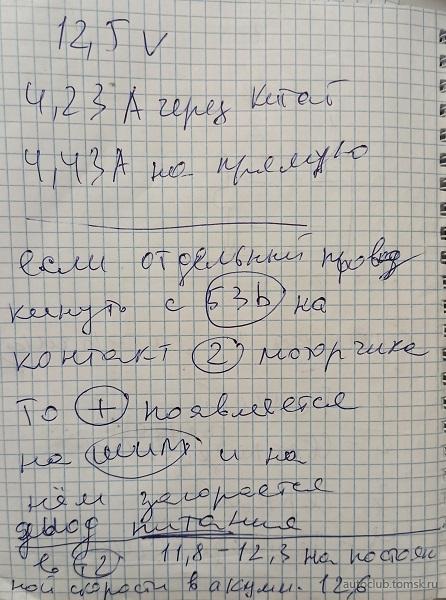 12,5 V
4,23 А через Китай
4,43А на прямую
если отдельный провод
кинуть с 53b на
контакт 2 моторчика
то + появляется
на шим и на
нём загорается
диод питания
в 2 11,8 – 12,3 на постоян
ной скорости в акумм. 12,6
autoclub.tomsk.ru